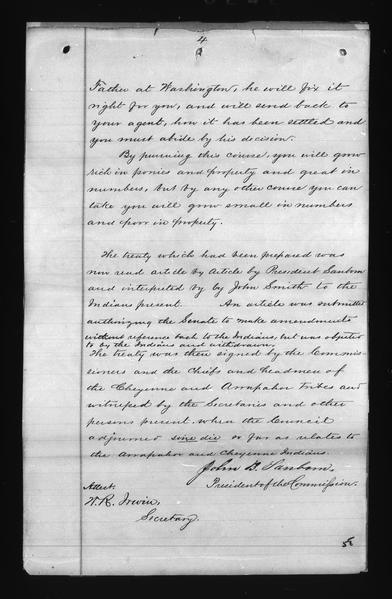 4
Father at Washington, he will fix it
right for you, and will send back to
your agent, how it has been settled and
you must abide by his decision.
By pursuing this course, you will grow
rich in ponies and property and great in
numbers, but by any other course you can
take you will grow small in numbers
and poor in property.
The treaty which had been prepared was
now read article by article by President Sanborn
and interpreted by by John Smith to the
Indians present. An article was submitted
authorizing the Senate to make amendments
without reference back to the Indians, but was objected
to by the Indians and withdrawn.
The treaty was then signed by the Commis-
sioners and the Chiefs and headmen of
the Cheyenne and Arrapahoe tribes and
witnessed by the Secretaries and other
persons present. when the Council
adjourned sine die so far as relates to
the Arrapahoe and Cheyenne Indians.
John B. Sanborn,
President of the Commission.
Attest.
W. R. Irwin,
Secretary.